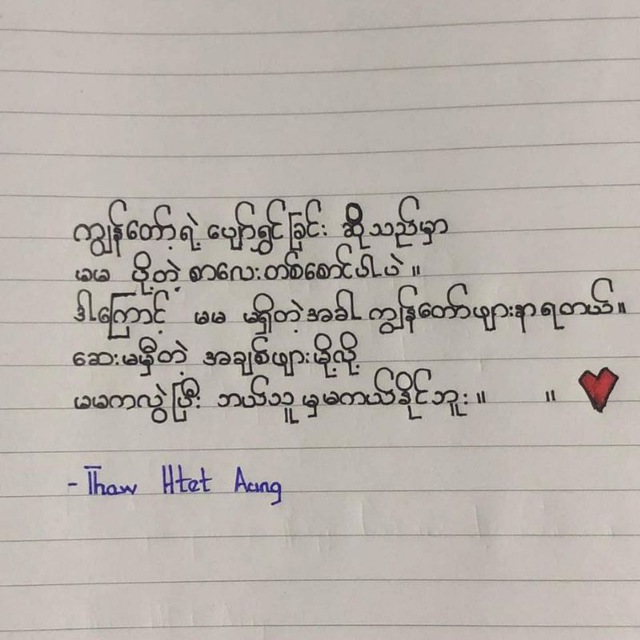 ကျွန်တော့်ရဲ့ ပျော်ရွှင်ခြင်း ဆိုသည်မှာ
မမ ပို့တဲ့ စာလေးတစ်စောင်ပါပဲ ။
ဒါကြောင့် မမ မရှိတဲ့အခါ ကျွန်တော်ဖျားနာရတယ်။
ဆေးမမှီတဲ့ အချစ်ဖျားမို့လို့
မမကလွဲပြီး ဘယ်သူမှမကယ်နိုင်ဘူး ။ ။
- Thaw Htet Aung